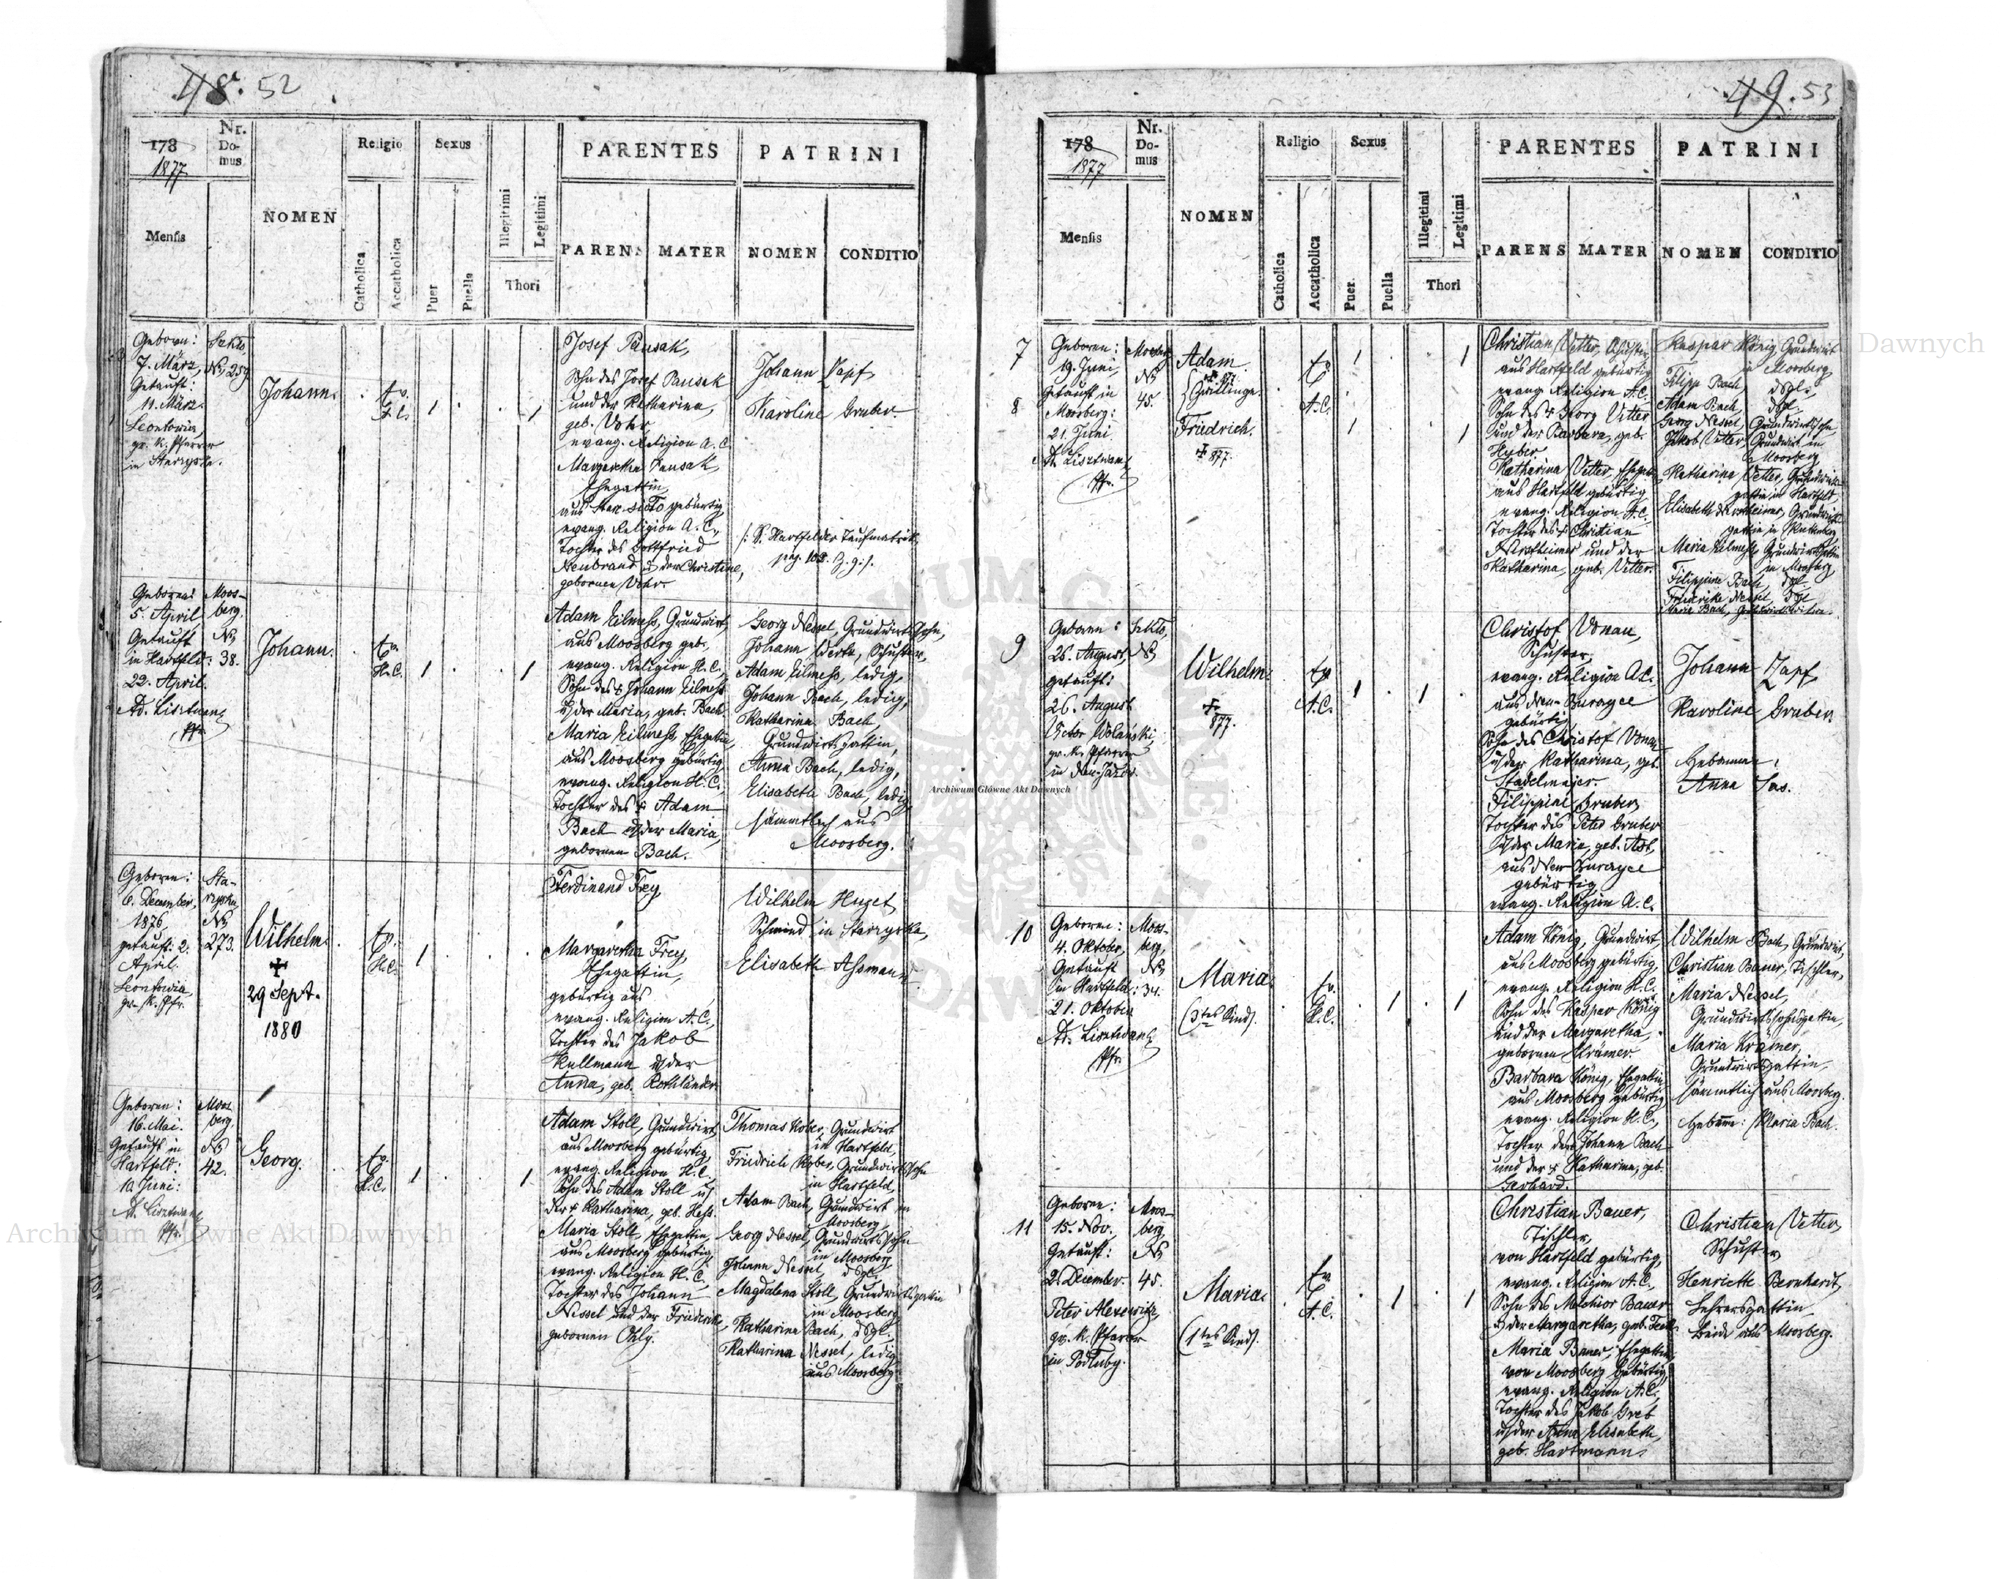 48. 52
178
1877
Nr.
Do-
mus
NOMEN
Religio
Sexus
PARENTES
PATRINI
Mensis
Catholica
Accatholica
Puer
Puella
Illegitimi
Legitimi
Thori
PARENS
MATER
NOMEN
CONDITIO
Geboren:
7. März,
Getauft:
11. März.
Leontowia,
gr. k. Pfarrer
in Starzyska.
Szkło,
No 259
Johann.
Ev.
A.C.
1
1
Josef Pausak,
Sohn des Josef Pausak
und der Katharina,
geb. Vohr
evang. Religion A. C.
Margaretha Pausak,
Ehegattin,
gebürtig
evang. Religion A. C.,
Tochter des Gottfried
Neubrand u. der Christine,
gebornen Vohr.
Johann Zapf
Karoline Gruber
/: S. Hartfelder Taufmatrik
pag. 108.
Geboren:
5. April
Getauft
in Hartfeld:
22. April.
Ad. Lisztwan,
Pfr.
Moos-
berg.
No
38.
Johann.
Ev.
H.C.
1
1
Adam Eilmess, Grundwirt,
aus Moosberg geb.,
evang. Religion H. C.,
Sohn des + Johann Eilmess
u. der Maria, geb. Bach.
Maria Eilmess, Ehegattin,
aus Moosberg gebürtig,
evang. Religion H. C.,
Tochter des + Adam
Bach u. der Maria,
gebornen Bach.
Georg Nessel, Grundwirtssohn,
Johann Werle, Schuster,
Adam Eilmess, ledig,
Johann Bach, ledig,
Katharina Bach,
Grundwirtsgattin,
Anna Bach, ledig,
Elisabeth Bach, ledig,
sämmtlich aus
Moosberg.
Geboren:
6. December,
1876,
getauft: 2.
April.
Leontowia,
gr. k. Pfr.
Sta-
rzyska
No
273.
Wilhelm.
+
29 Sept.
1880
Ev.
H.C.
1
Ferdinand Frey,
Margaretha Frey,
Ehegattin,
gebürtig aus
evang. Religion A. C.,
Tochter des Jakob
Kullmann u. der
Anna, geb. Rothländer
Wilhelm Huget,
Schmied in Starzyska,
Elisabeth Assmann
Geboren:
16. Mai.
Getauft in
Hartfeld:
10. Juni:
A. Lisztwan,
Pfr.
Moos-
berg.
No
42.
Georg.
Ev.
H.C.
1
1
Adam Stoll, Grundwirt,
aus Moosberg gebürtig,
evang. Religion H. C.
Sohn des Adam Stoll u.
der + Katharina, geb. Hess
Maria Stoll, Ehegattin,
aus Moosberg gebürtig,
evang. Religion H. C.,
Tochter des Johann
Nessel und der Friederike,
gebornen Ohly.
Thomas Kober, Grundwirt
in Hartfeld,
Friedrich Kober, Grundwirtssohn
in Hartfeld
Adam Bach, Grundwirt in
Moosberg,
Georg Nessel, Grundwirtssohn
in Moosberg
Johann Nessel, dsgl.
Magdalena Stoll, Grundwirtsgattin
in Moosberg,
Katharina Bach, dsgl.
Katharina Nessel, ledig
aus Moosberg.
49. 53
178
1877
Nr.
Do-
mus
NOMEN
Religio
Sexus
PARENTES
PATRINI
Mensis
Catholica
Accatholica
Puer.
Puella
Illegitimi
Legitimi
Thori
PARENS
MATER
NOMEN
CONDITIO
7
8
Geboren:
19. Juni,
Getauft in
Moosberg:
21. Juni
A. Lisztwan,
Pfr.
Moosberg
No
45.
Adam.
Zwillinge.
Friedrich.
+ 877.
Ev.
A.C.
1
1
1
1
Christian Vetter, Schuster,
aus Hartfeld gebürtig
evang. Religion A. C.
Sohn des + Georg Vetter
und der Barbara, geb.
Huber
Katharina Vetter, Ehegattin
aus Hartfeld gebürtig
evang. Religion A. C.
Tochter des + Christian
und der
Katharina, geb. Vetter.
Kaspar König, Grundwirt
in Moosberg
Filipp Bach, dsgl.
Adam Bach, dsgl.
Georg Nessel, Grundwirtssohn,
Jakob Vetter, Grundwirt in
Moosberg
Katharina Vetter, Grundwirts-
gattin in Hartfeld,
Maria Eilmess, Grundwirtsgattin
in Moosberg,
Filippine Bach, dsgl.
Friedrike Nessel, dsgl.
9
Geboren:
25. August,
getauft:
26. August
Victor Wolański,
gr. k. Pfarrer
in Nen-Jazów.
Szkło,
No
Wilhelm.
+
877.
Ev.
A.C.
1
1
Christof Vonau,
Schuster,
evang. Religion A. C.
aus Neu-Burayce
gebürtig
Sohn des Christof Vonau
u. der Katharina, geb.
Stadelmeier.
Filippine Gruber,
Tochter des Peter Gruber
u. der Maria, geb. Ast,
aus Neu-Burayce
gebürtig
evang. Religion A. C.
Johann Zapf
Karoline Gruber
Hebamme:
Anna Sas.
10
Geboren:
4. Oktober,
Getauft
in Hartfeld:
21. Oktober
Ad. Lisztwan,
Pfr.
Moos-
berg,
No
34.
Maria.
(3tes Kind).
Ev.
H.C.
1
1
Adam König, Grundwirt,
aus Moosberg gebürtig,
evang. Religion H. C.
Sohn des Kaspar König
und der Margaretha,
gebornen Krämer.
Barbara König, Ehegattin,
aus Moosberg gebürtig
evang. Religion H. C.,
Tochter des + Johann Bach
und der + Katharina, geb.
Gerhard.
Wilhelm Bach, Grundwirt,
Christian Bauer, Tischler,
Maria Nessel,
Grundwirtssohnsgattin,
Maria Krämer,
Grundwirtsgattin,
sämmtlich aus Moosberg.
Hebamme: Maria Bach.
11
Geboren:
15. Nov.
Getauft:
2. December.
Peter Alexewicz,
gr. k. Pfarrer
in Podłuby.
Moos-
berg,
No
45.
Maria.
(1tes Kind).
Ev.
A.C.
1
1
Christian Bauer,
Tischler,
von Hartfeld gebürtig,
evang. Religion A. C.,
Sohn des Melchior Bauer
u. der Margaretha, geb.
Maria Bauer, Ehegattin,
von Moosberg gebürtig,
evang. Religion A. C.,
Tochter des Jakob Greb
u. der Anna Elisabeth,
geb. Hartmann.
Christian Vetter,
Schuster
Henriette Bernhardt,
Lehrersgattin
beide aus Moosberg.
Archiwum Główne Akt Dawnych